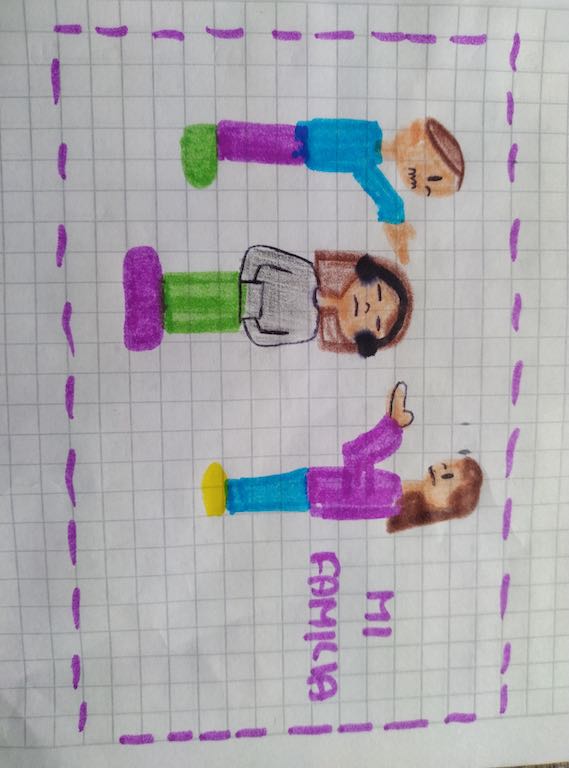 MI
FAMILIA